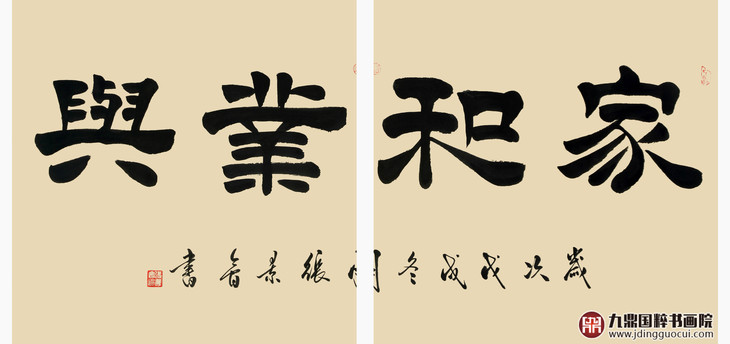 家和業興
歲次戊戌冬月張景音書
九鼎国粹书画院
www.jdingguocui.com